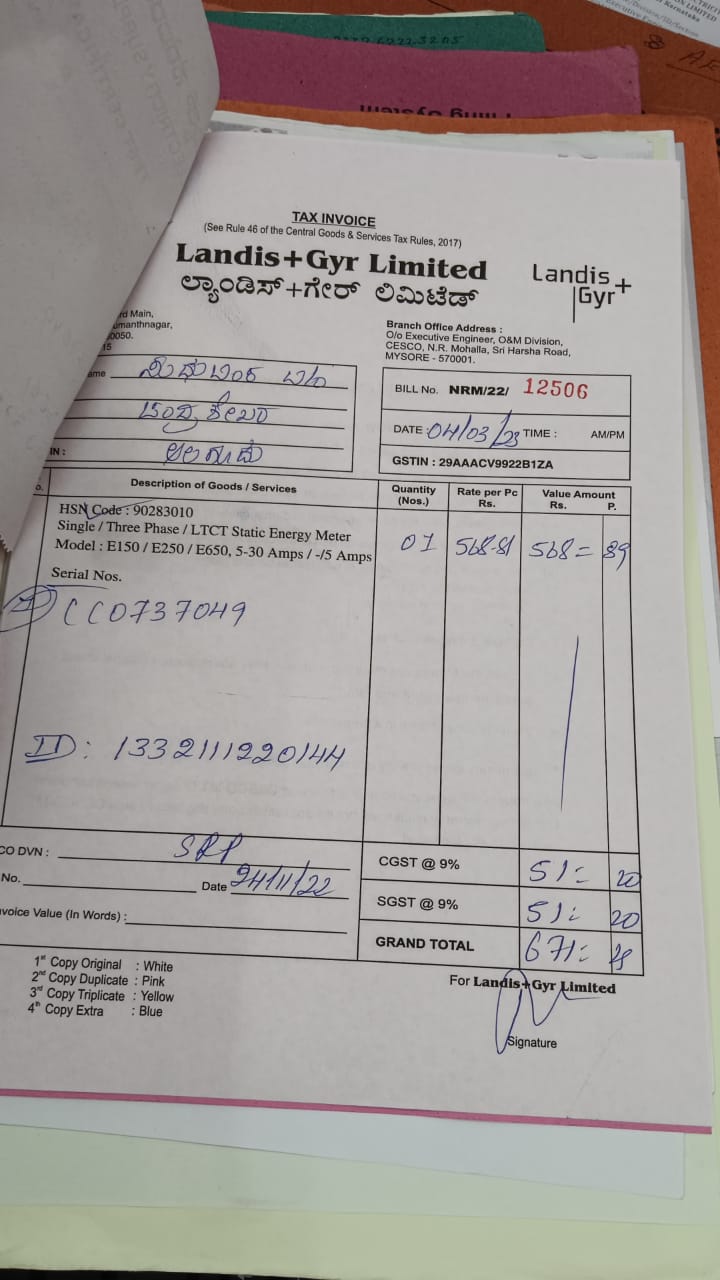 TAX INVOICE
(See Rule 46 of the Central Goods & Services Tax Rules, 2017)
Landis+Gyr Limited
ಲ್ಯಾಂಡಿಸ್+ಗೇರ್ ಲಿಮಿಟೆಡ್
Landis+
Gyr
rd Main,
umanthnagar,
0050.
15
Branch Office Address :
O/o Executive Engineer, O&M Division,
CESCO, N.R. Mohalla, Sri Harsha Road,
MYSORE - 570001.
ame
IN :
BILL No. NRM/22/ 12506
DATE : 04/03/23 TIME : AM/PM
GSTIN : 29AAACV9922B1ZA
o. Description of Goods / Services Quantity (Nos.) Rate per Pc Rs. Value Amount Rs. P.
HSN Code : 90283010
Single / Three Phase / LTCT Static Energy Meter
Model : E150 / E250 / E650, 5-30 Amps / -/5 Amps 01 568-81 568= 89
Serial Nos.
CC0737049
ID: 1332111220144
CO DVN : SRP
No. Date 24/11/22
nvoice Value (In Words) :
CGST @ 9% 51= 20
SGST @ 9% 51= 20
GRAND TOTAL 671=
1st Copy Original : White
2nd Copy Duplicate : Pink
3rd Copy Triplicate : Yellow
4th Copy Extra : Blue
For Landis+Gyr Limited
Signature